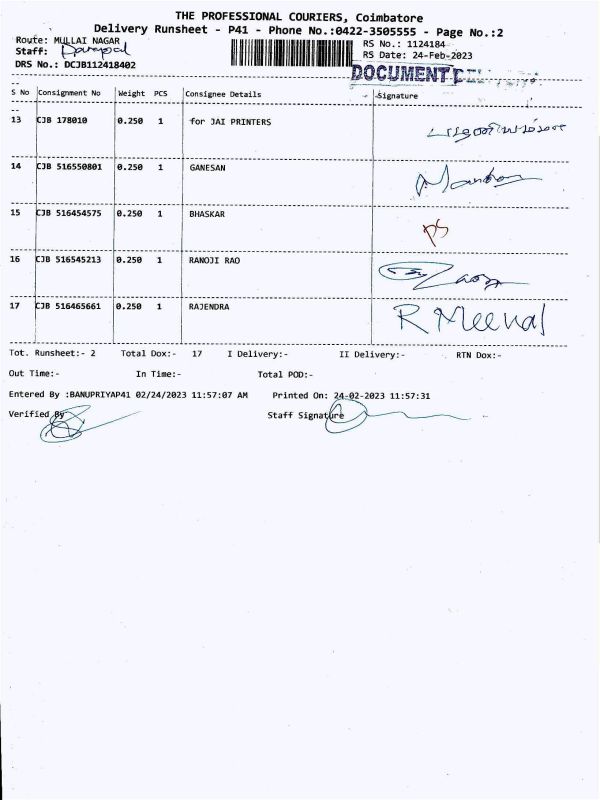 THE PROFESSIONAL COURIERS, Coimbatore
Delivery Runsheet - P41 - Phone No.:0422-3505555 - Page No.:2
Route: MULLAI NAGAR
RS No.: 1124184
Staff:
RS Date: 24-Feb-2023
DRS No.: DCJB112418402
DOCUMENT
--
S No Consignment No Weight PCS Consignee Details - -Signature
--
13 CJB 178010 0.250 1 for JAI PRINTERS
14 CJB 516550801 0.250 1 GANESAN
15 CJB 516454575 0.250 1 BHASKAR
16 CJB 516545213 0.250 1 RANOJI RAO
17 CJB 516465661 0.250 1 RAJENDRA R Meenal
Tot. Runsheet:- 2 Total Dox:- 17 I Delivery:- II Delivery:- RTN Dox:-
Out Time:- In Time:- Total POD:-
Entered By :BANUPRIYAP41 02/24/2023 11:57:07 AM Printed On: 24-02-2023 11:57:31
Verified By Staff Signature